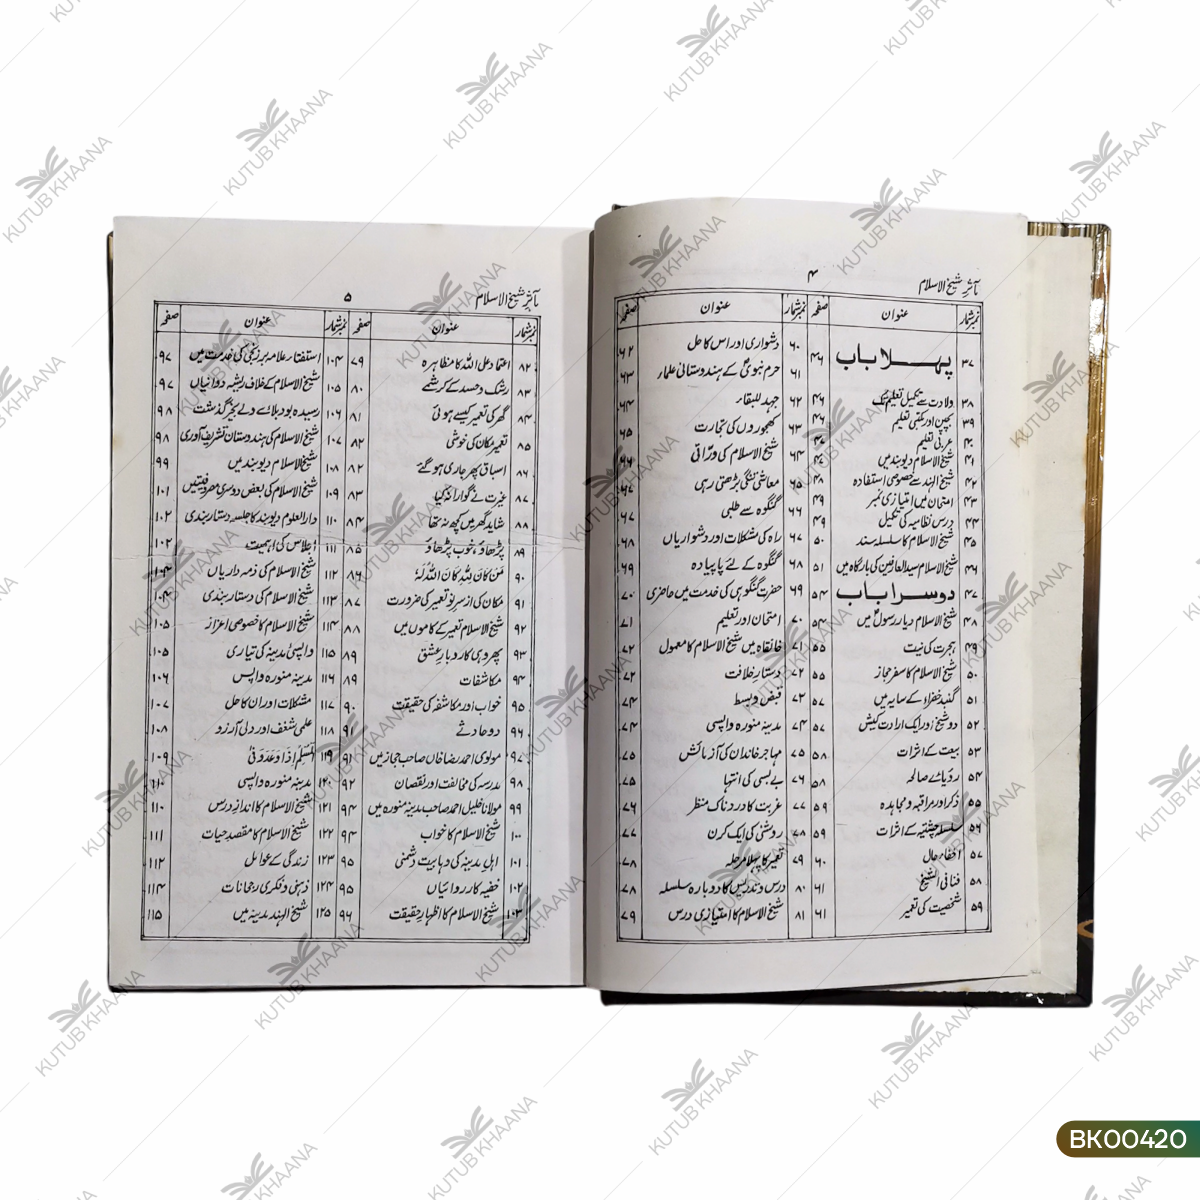 مآثرِ شیخ الاسلام
۴
نمبرشمار عنوان صفحہ نمبرشمار عنوان صفحہ
۳۷ پہلا باب ۴۶
۳۸ ولادت سے تکمیل تعلیم تک ۴۶
۳۹ بچپن اور مکتبی تعلیم ۴۶
۴۰ عربی تعلیم
۴۱ شیخ الاسلام دیوبند میں
۴۲ شیخ الہند سے خصوصی استفادہ ۴۸
۴۳ امتحان میں امتیازی نمبر ۴۹
۴۴ درس نظامیہ کی تکمیل ۴۹
۴۵ شیخ الاسلام کا سلسلہ سند ۵۰
۴۶ شیخ الاسلام سید العارفین کی بارگاہ میں ۵۱
۴۷ دوسرا باب ۵۴
۴۸ شیخ الاسلام دیار رسولؐ میں ۵۴
۴۹ ہجرت کی نیت ۵۵
۵۰ شیخ الاسلام کا سفر حجاز ۵۵
۵۱ گنبد خضراء کے سایہ میں ۵۷
۵۲ دو شیخ اور ایک ارادت کیش ۵۷
۵۳ بیعت کے اثرات ۵۸
۵۴ رؤیائے صالحہ ۵۸
۵۵ ذکر اور مراقبہ و مجاہدہ ۵۹
۵۶ سلسلہ چشتیہ کے اثرات ۵۹
۵۷ اخفاء حال ۶۰
۵۸ فنا فی الشیخ ۶۱
۵۹ شخصیت کی تعمیر ۶۱
۶۰ دشواری اور اس کا حل ۶۲
۶۱ حرم نبویؐ کے ہندوستانی علماء ۶۳
۶۲ جہد للبقاء ۶۴
۶۳ کھجوروں کی تجارت ۶۵
۶۴ شیخ الاسلام کی ورّاقی ۶۶
۶۵ معاشی تنگی بڑھتی رہی ۶۷
۶۶ گنگوہ سے طلبی ۶۷
۶۷ راہ کی مشکلات اور دشواریاں ۶۸
۶۸ گنگوہ کے لئے پاپیادہ ۶۹
۶۹ حضرت گنگوہی کی خدمت میں حاضری ۷۰
۷۰ امتحان اور تعلیم ۷۱
۷۱ خانقاہ میں شیخ الاسلام کا معمول ۷۲
۷۲ دستار خلافت ۷۲
۷۳ قبض و بسط ۷۴
۷۴ مدینہ منورہ واپسی ۷۴
۷۵ مہاجر خاندان کی آزمائش ۷۵
۷۶ بے بسی کی انتہا ۷۵
۷۷ غربت کا دردناک منظر ۷۶
۷۸ روشنی کی ایک کرن ۷۷
۷۹ تعمیر کا پہلا مرحلہ ۷۸
۸۰ درس و تدریس کا دوبارہ سلسلہ ۷۸
۸۱ شیخ الاسلام کا امتیازی درس ۷۹
مآثرِ شیخ الاسلام
۵
نمبرشمار عنوان صفحہ نمبرشمار عنوان صفحہ
۸۲ اعتماد علی اللہ کا مظاہرہ ۷۹
۸۳ رشک و حسد کے کرشمے ۸۰
۸۴ گھر کی تعمیر کیسے ہوئی ۸۱
۸۵ تعمیر مکان کی خوشی ۸۲
۸۶ اسباق پھر جاری ہو گئے ۸۲
۸۷ غیرت نے گوارا نہ کیا ۸۳
۸۸ شاید گھر میں کچھ نہ تھا ۸۴
۸۹ پڑھاؤ، خوب پڑھاؤ ۸۵
۹۰ مَن کَانَ لِلّٰہِ کَانَ اللّٰہُ لَہٗ ۸۶
۹۱ مکان کی از سر نو تعمیر کی ضرورت ۸۷
۹۲ شیخ الاسلام تعمیر کے کاموں میں ۸۸
۹۳ پھر وہی کاروبارِ عشق ۸۹
۹۴ مکاشفات ۸۹
۹۵ خواب اور مکاشفہ کی حقیقت ۹۰
۹۶ دو حادثے ۹۱
۹۷ مولوی احمد رضا خاں صاحب حجاز میں ۹۱
۹۸ مدرسہ کی مخالفت اور نقصان ۹۲
۹۹ مولانا خلیل احمد صاحب مدینہ منورہ میں ۹۴
۱۰۰ شیخ الاسلام کا خواب ۹۴
۱۰۱ اہل مدینہ کی وہابیت دشمنی ۹۵
۱۰۲ خفیہ کارروائیاں ۹۵
۱۰۳ شیخ الاسلام کا اظہار حقیقت ۹۶
۱۰۴ استفتاء علامہ برزنجی کی خدمت میں ۹۷
۱۰۵ شیخ الاسلام کے خلاف ریشہ دوانیاں ۹۷
۱۰۶ رسیدہ بود بلائے ولے بخیر گذشت ۹۸
۱۰۷ شیخ الاسلام کی ہندوستان تشریف آوری ۹۸
۱۰۸ شیخ الاسلام دیوبند میں ۹۹
۱۰۹ شیخ الاسلام کی بعض دوسری مصروفیتیں ۱۰۱
۱۱۰ دارالعلوم دیوبند کا جلسہ دستاربندی ۱۰۲
۱۱۱ اجلاس کی اہمیت ۱۰۲
۱۱۲ شیخ الاسلام کی ذمہ داریاں ۱۰۴
۱۱۳ شیخ الاسلام کی دستاربندی ۱۰۴
۱۱۴ شیخ الاسلام کا خصوصی اعزاز ۱۰۵
۱۱۵ واپسیٔ مدینہ کی تیاری ۱۰۵
۱۱۶ مدینہ منورہ واپس ۱۰۶
۱۱۷ مشکلات اور ان کا حل ۱۰۷
۱۱۸ علمی شغف اور دلی آرزو ۱۰۸
۱۱۹ اذا وعد وفیٰ ۱۰۹
۱۲۰ مدینہ منورہ واپسی ۱۱۰
۱۲۱ شیخ الاسلام کا انداز درس ۱۱۰
۱۲۲ شیخ الاسلام کا مقصد حیات ۱۱۱
۱۲۳ زندگی کے عوامل ۱۱۲
۱۲۴ ذہنی و فکری رجحانات ۱۱۴
۱۲۵ شیخ الہند مدینہ میں ۱۱۵
KUTUB KHAANA
BK00420